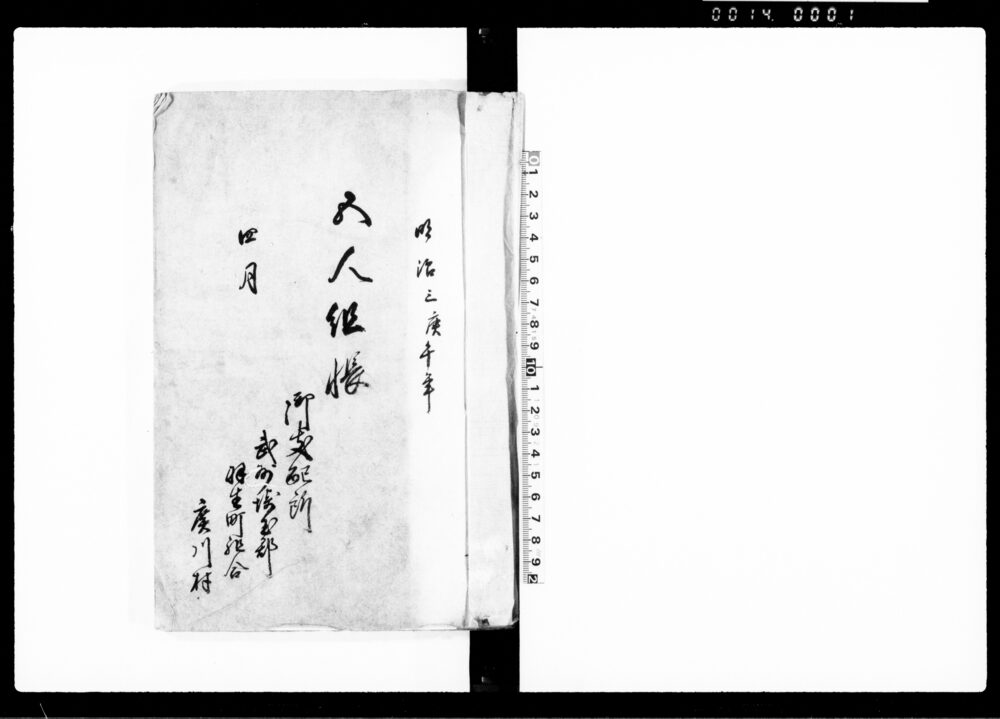 0014 0001
明治三庚午年
五人組帳
四月
御支配所
武州埼玉郡
羽生町組合
廣川村
0 1 2 3 4 5 6 7 8 9 10 1 2 3 4 5 6 7 8 9 2